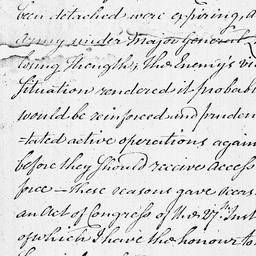 been detached were expiring, a
Army under Major General
losing strength, the Enemy's
Situation rendered it probab
would be reinforced and pruden
=tated active operations again
before they should receive access
force — these reasons gave
an Act of Congress of the 27th Inst
of which I have the honour to